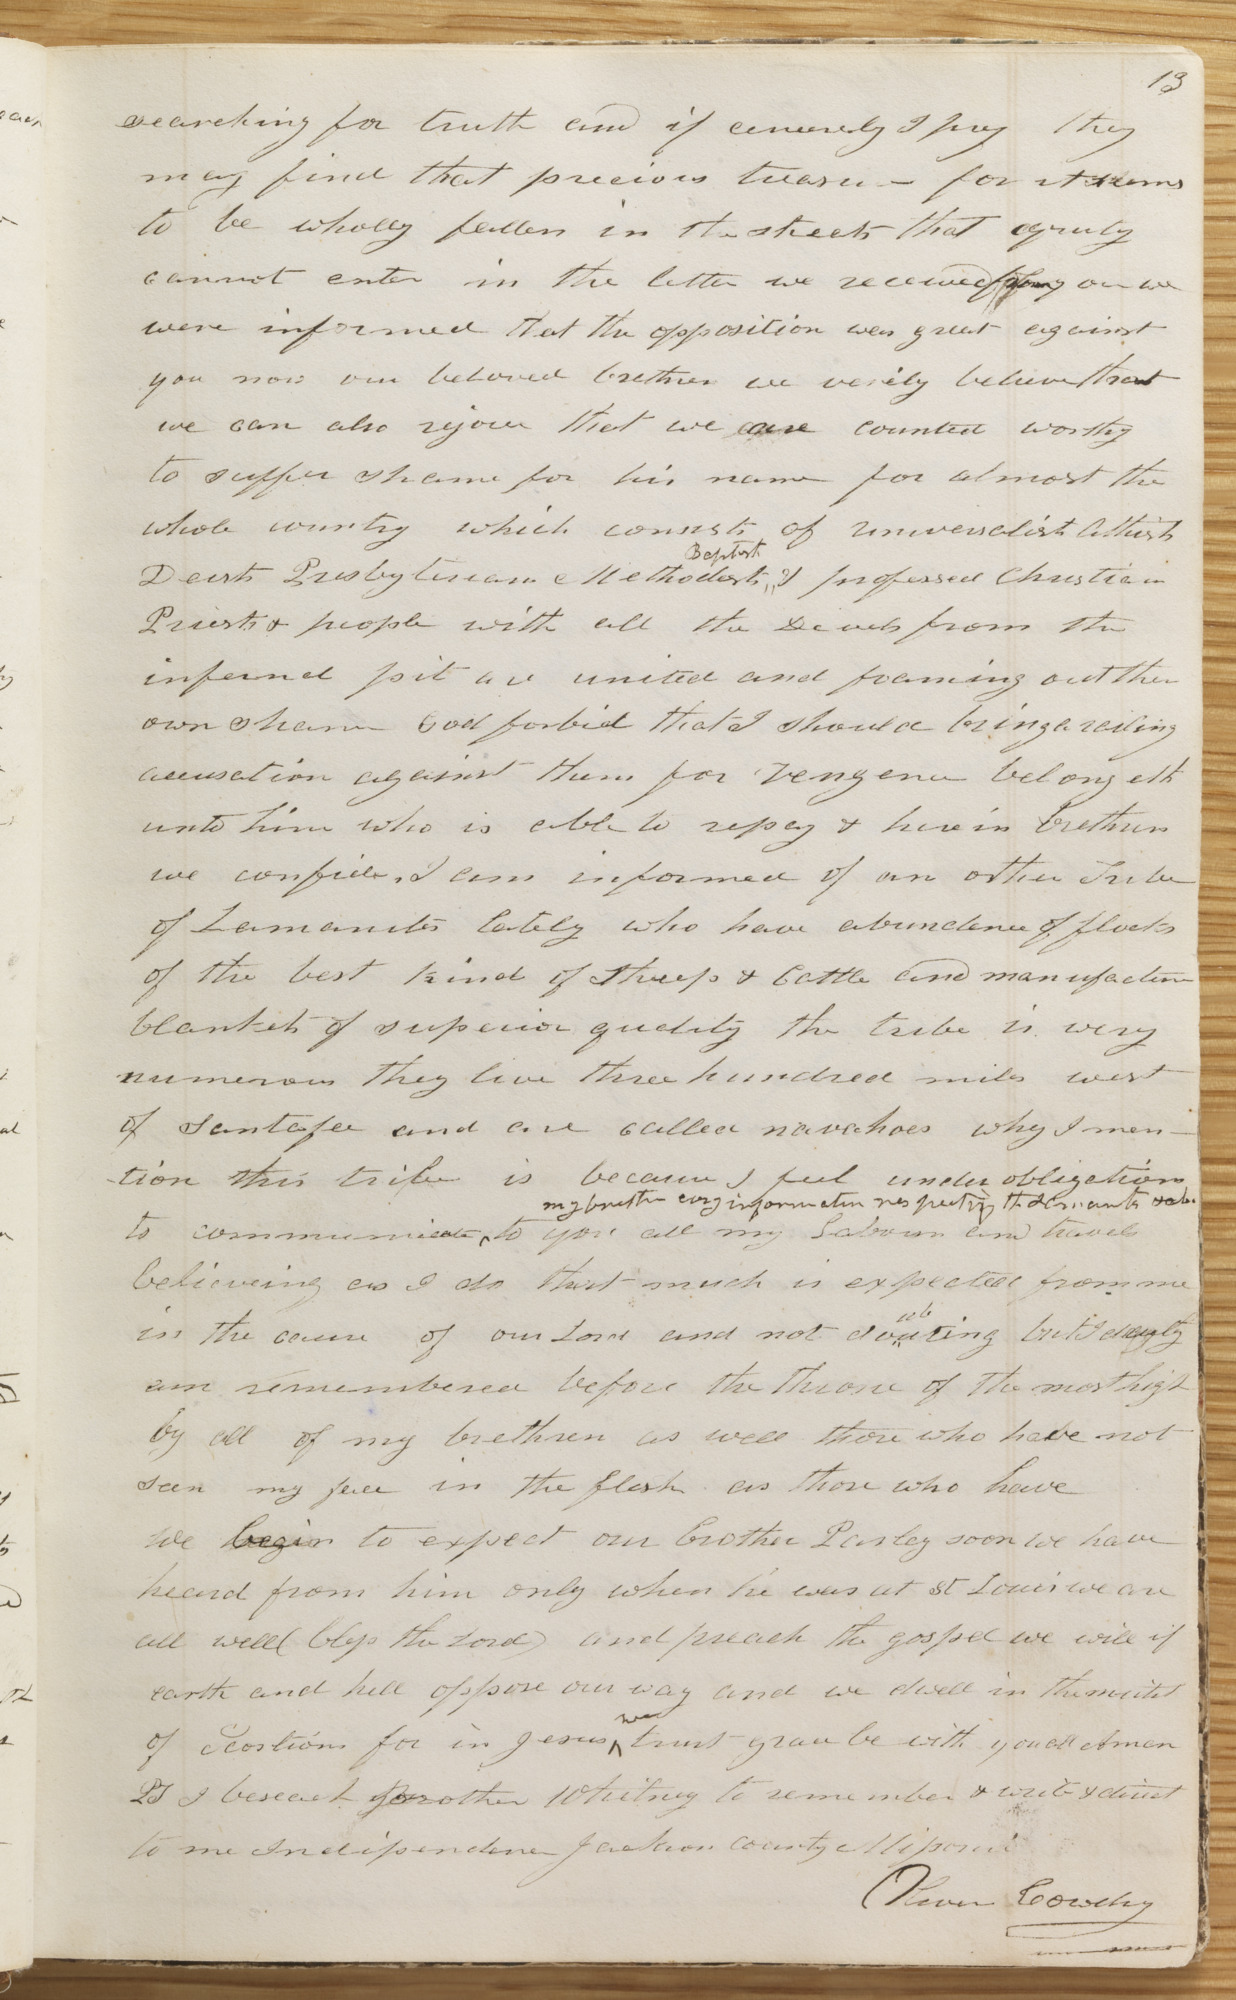 13
searching for truth and if cincerely I pray they
may find that precious treasure for it seems
to be wholly fallen in the streets that equity
cannot enter in the letter we received from you we
were informed that the opposition was great against
you now our beloved brethren we verily believe that
we can also rejoice that we are counted worthy
to suffer shame for his name for almost the
whole country which consists of universalist Athiests
Baptists
Deists Presbyterians Methodists & professed Christian
Priests & people with all the Devels from the
infernal pit are united and foaming out their
own shame God forbid that I should bring a railing
accusation against them for vengence belongeth
unto him who is able to repay & herein brethren
we confide, I am informed of an other Tribe
of Lamanites lately who have abundence of flocks
of the best kind of sheep & Cattle and manufacture
blankets of superior quality the tribe is very
numerous they live three hundred miles west
of Santafee and are called navahoes why I men-
-tion this tribe is because I feel under obligations
my breth[r]en evry information respecting the Lamanites & also
to communicate to you all my Labours and travels
believeing as I do that much is expected from me
in the cause of our Lord and not
doubting but I dayly
am remembered before the throne of the most high
by all of my brethren as well those who have not
seen my face in the flesh as those who have
we begin to expect our brother Parley soon we have
heard from him only when he was at St Louis we are
all well (bless the Lord) and preach the gospel we will if
earth and hell oppose our way and we dwell in the midst
of Scorpions for in Jesus we trust grace be with you all Amen
PS I beseech brother Whitney to remember & write & direct
to me Independence Jackson County Missouri
Oliver Cowdry